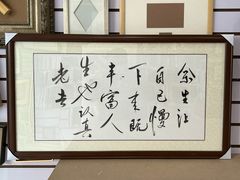 余生让
自己慢
下来既
丰富人
生也认真
老去